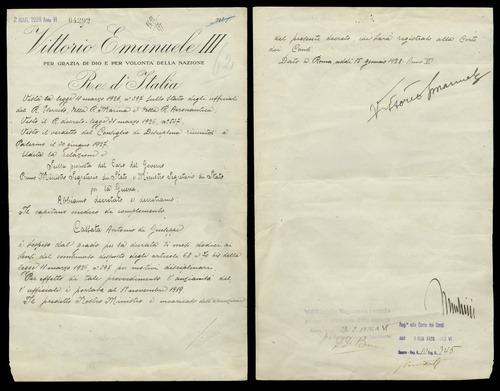 2 MAR. 1928 Anno VI 04292
Vittorio Emanuele III
PER GRAZIA DI DIO E PER VOLONTÀ DELLA NAZIONE
Re d'Italia
62
Vista la legge 11 marzo 1926, n° 397 sullo Stato degli ufficiali
del R. Esercito, della R. Marina e della R. Aeronautica;
Visto il R. decreto-legge 21 marzo 1926, n°
Visto il verdetto del Consiglio di Disciplina riunitosi a
Palermo il 30 giugno 1927.
Udita la relazione
Sulla proposta del Capo del Governo
Primo Ministro Segretario di Stato e Ministro Segretario di Stato
per la Guerra.
Abbiamo decretato e decretiamo
Il capitano medico di complemento
Antonio di Giuseppe
è sospeso dal grado per la durata di mesi dodici ai
sensi del combinato disposto degli articoli 68 e 70 bis della
legge 11 marzo 1926, n° 397 per motivi disciplinari.
Per effetto di tale provvedimento l'anzianità del
l'ufficiale è portata al novembre 1919
Il predetto Nostro Ministro è incaricato dell'esecuzione
del presente decreto, che sarà registrato alla Corte
dei Conti
Dato a Roma, addì 15 gennaio 1928. Anno VI
Vittorio Emanuele
Mussolini
Reg.to alla Corte dei Conti
345